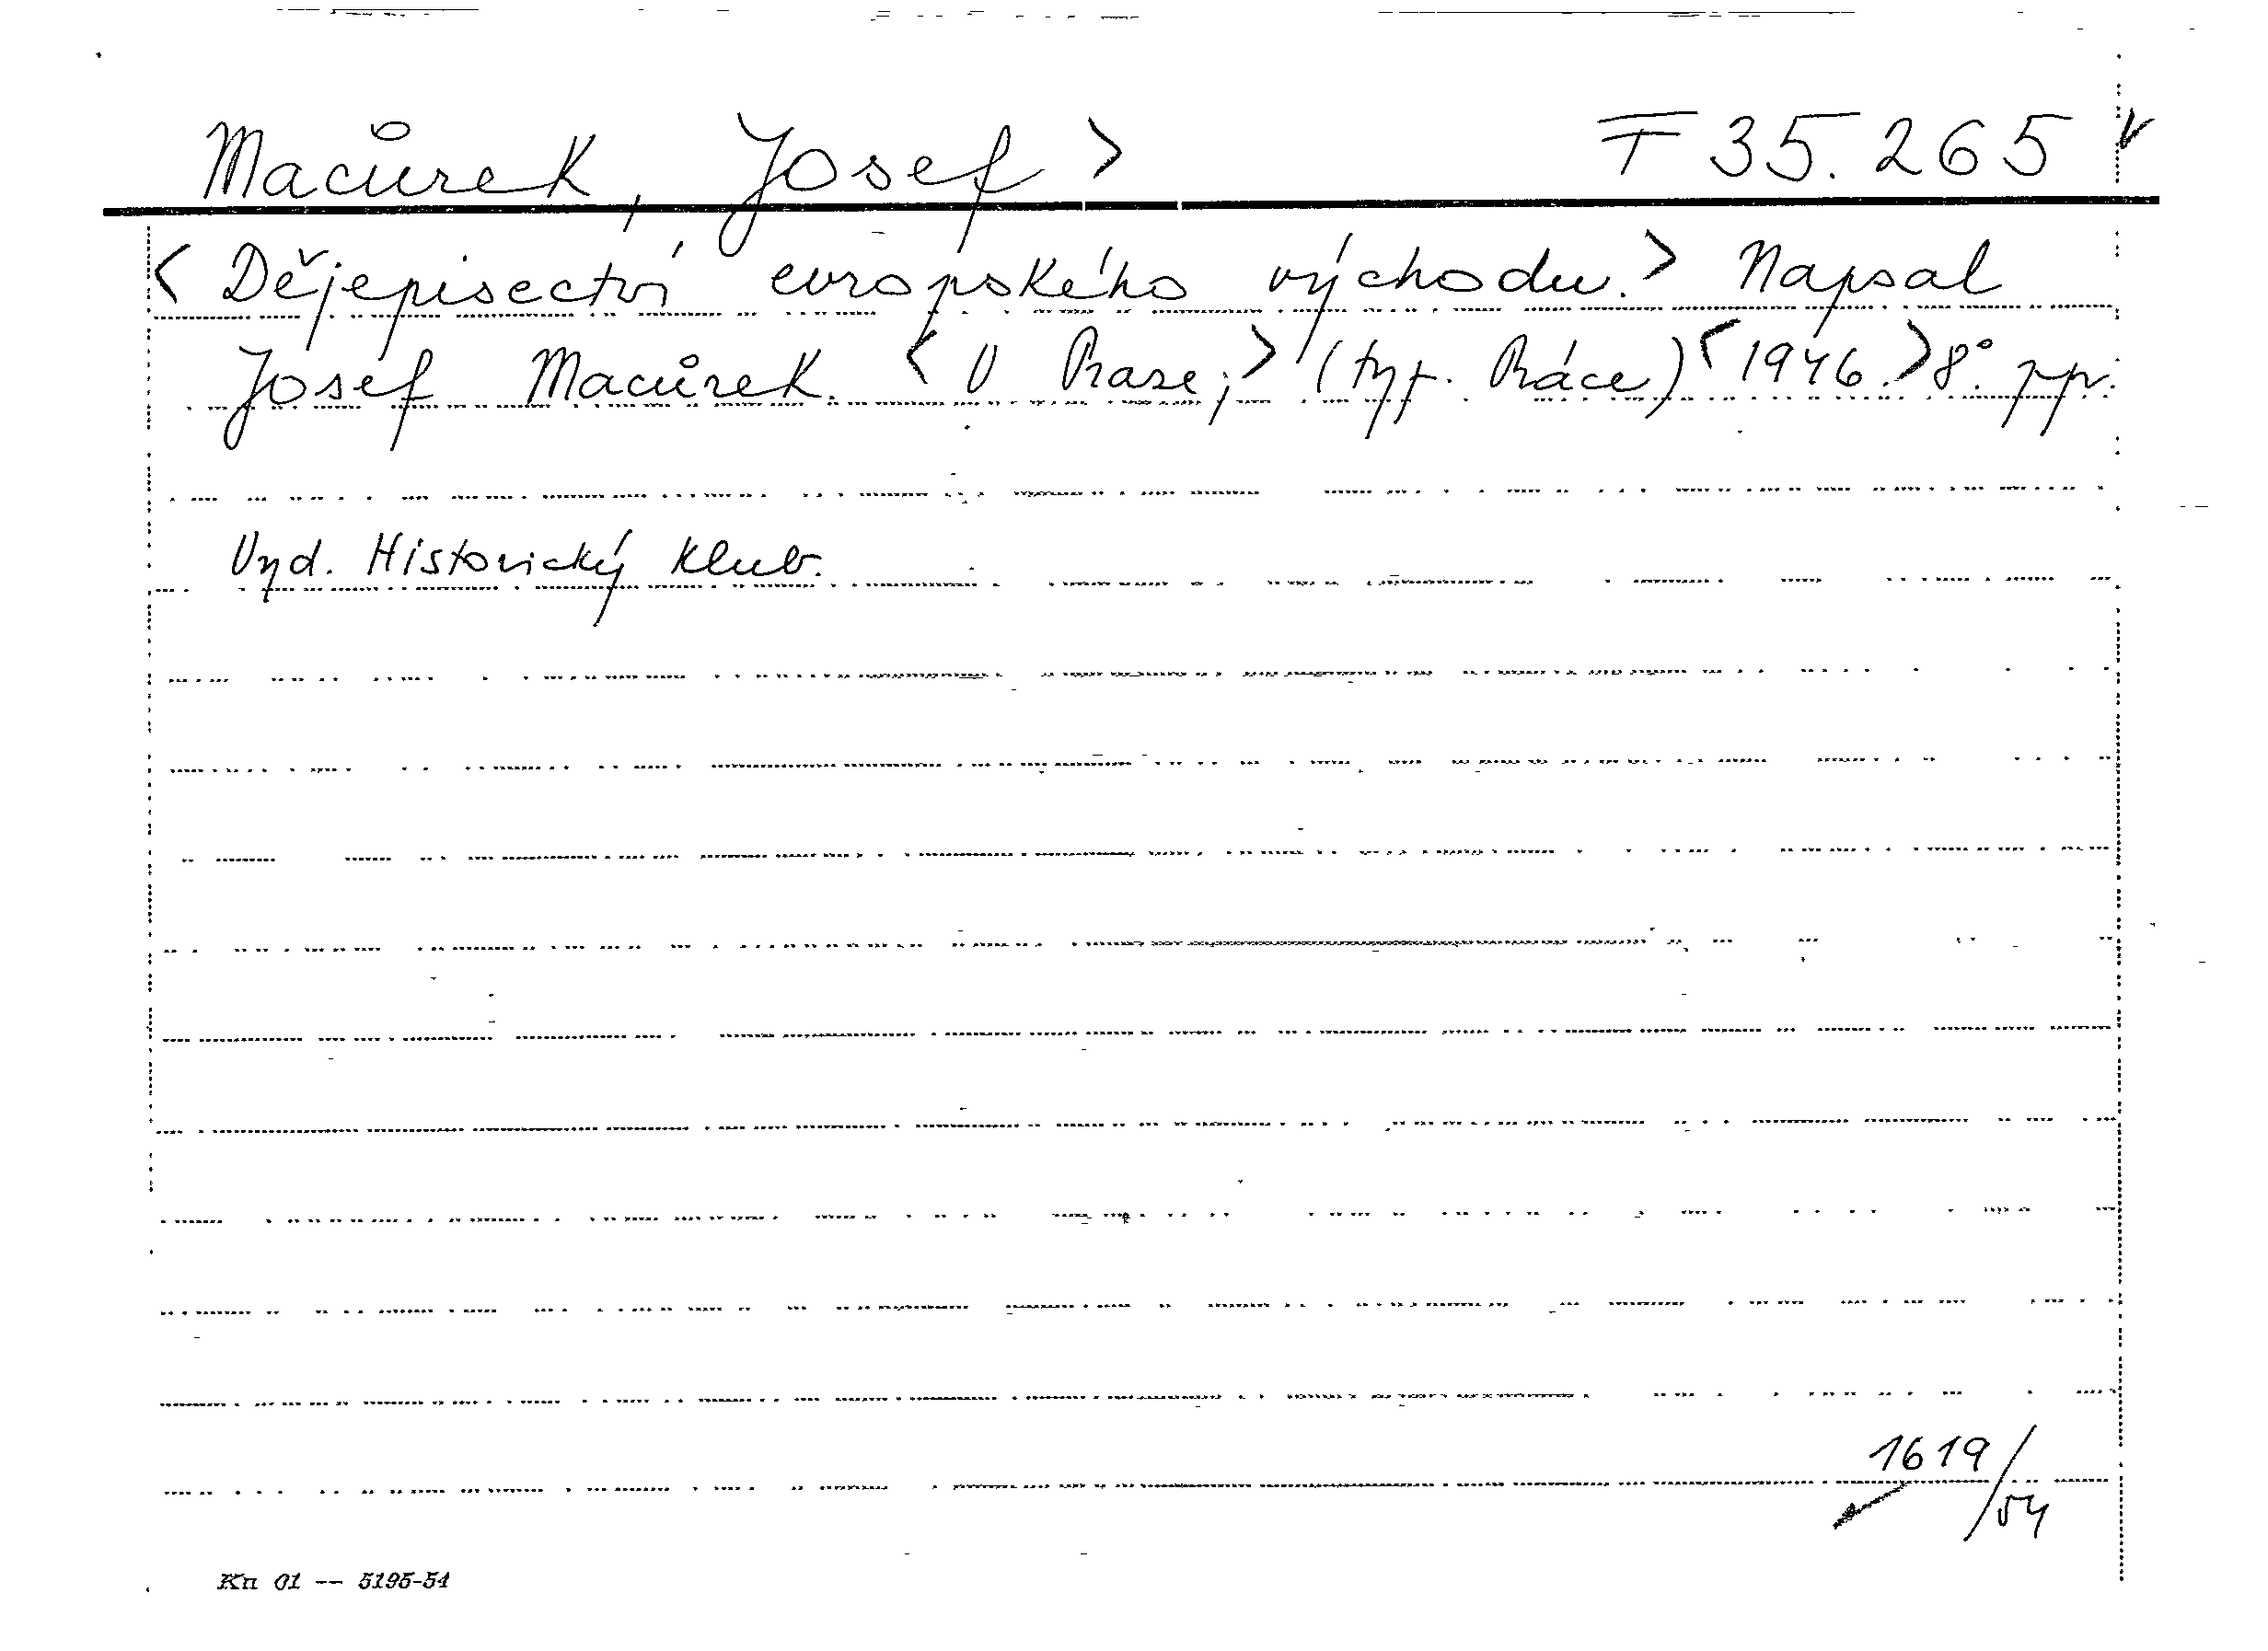 Macůrek, Josef > F 35.265 v
< Dějepisectví evropského východu. > Napsal
Josef Macůrek. < V Praze; > (typ. Práce) < 1946. > 8°. pp.
Vyd. Historický klub.
1619/54
Kn 01 -- 5195-54